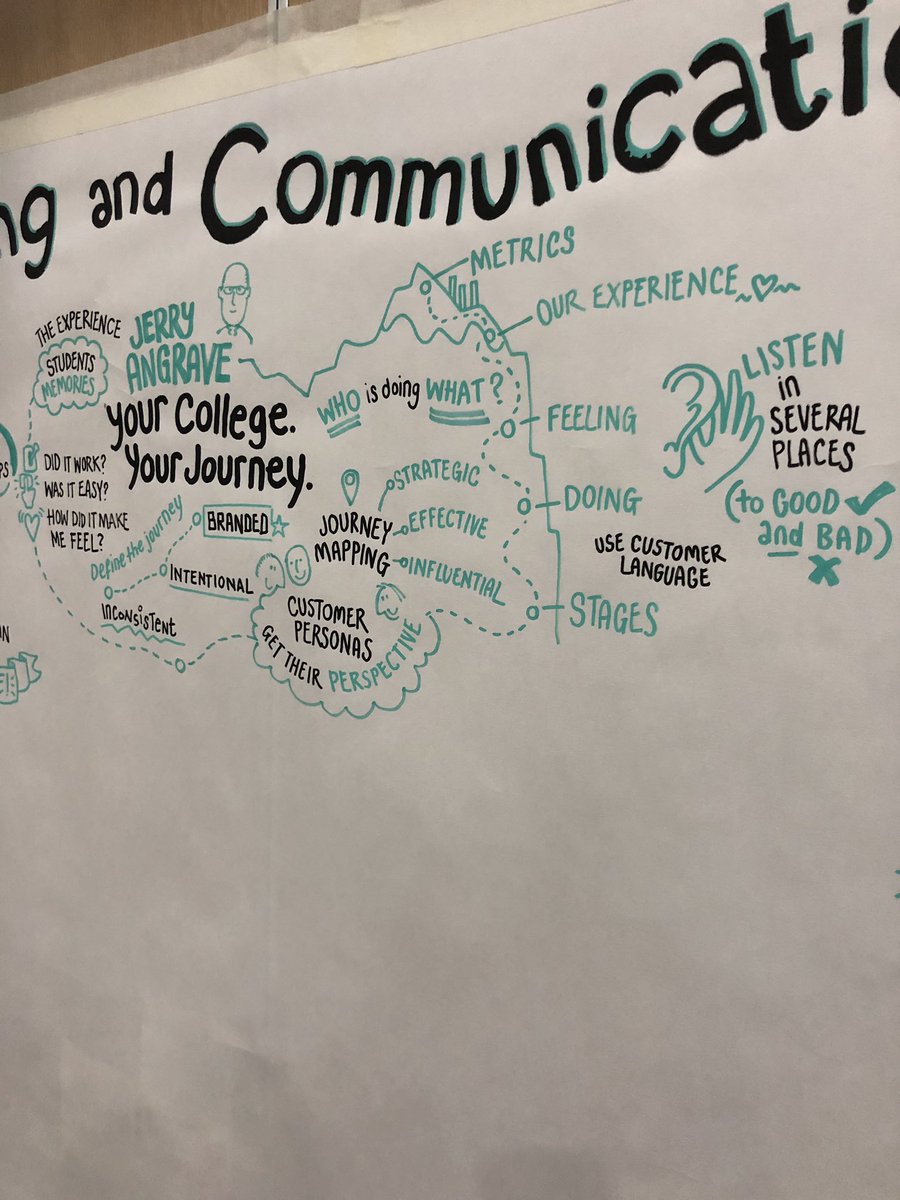 ng and Communicati
THE EXPERIENCE
STUDENTS
MEMORIES
JERRY
ANGRAVE
Your College.
Your Journey.
PS
DID IT WORK?
WAS IT EASY?
HOW DID IT MAKE
ME FEEL?
Define the journey
BRANDED
INTENTIONAL
INCONSISTENT
METRICS
OUR EXPERIENCE
WHO is doing WHAT?
FEELING
DOING
STAGES
JOURNEY
MAPPING
STRATEGIC
EFFECTIVE
INFLUENTIAL
CUSTOMER
PERSONAS
GET THEIR PERSPECTIVE
USE CUSTOMER
LANGUAGE
LISTEN
in
SEVERAL
PLACES
(to GOOD
and BAD)